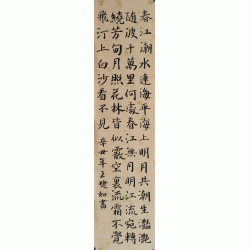 春江潮水連海平海上明月共潮生灩灩
隨波千萬里何處春江無月明江流宛轉
繞芳甸月照花林皆似霰空裏流霜不覺
飛汀上白沙看不見
辛丑年王如書